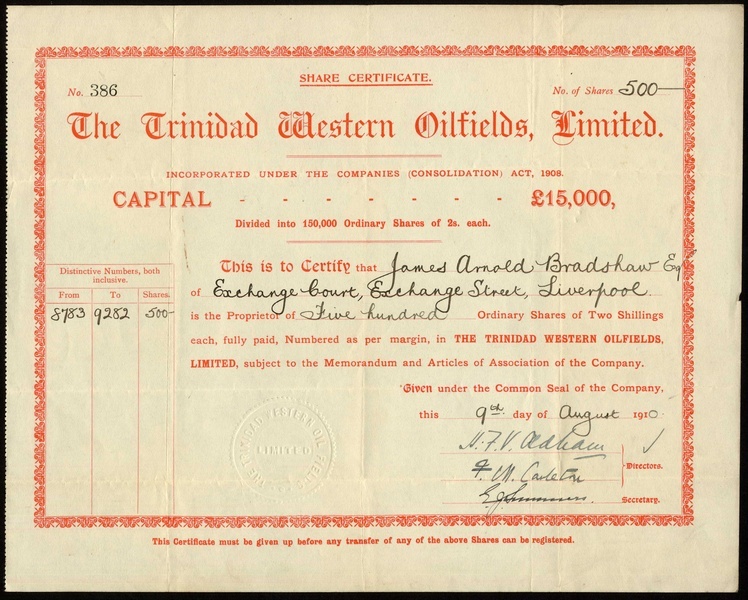 SHARE CERTIFICATE.
No. 386
No. of Shares 500
The Trinidad Western Oilfields, Limited.
INCORPORATED UNDER THE COMPANIES (CONSOLIDATION) ACT, 1908.
CAPITAL - - - - - - - £15,000,
Divided into 150,000 Ordinary Shares of 2s. each.
Distinctive Numbers, both inclusive.
From To Shares.
8783 9282 500
This is to Certify that James Arnold Bradshaw Esq
of Exchange Court, Exchange Street, Liverpool.
is the Proprietor of Five hundred Ordinary Shares of Two Shillings
each, fully paid, Numbered as per margin, in THE TRINIDAD WESTERN OILFIELDS,
LIMITED, subject to the Memorandum and Articles of Association of the Company.
Given under the Common Seal of the Company,
this 9th day of August 1910.
H. F. V. Oldham
F. M. Carleton
Directors.
Secretary.
THE TRINIDAD WESTERN OIL FIELDS
LIMITED
This Certificate must be given up before any transfer of any of the above Shares can be registered.